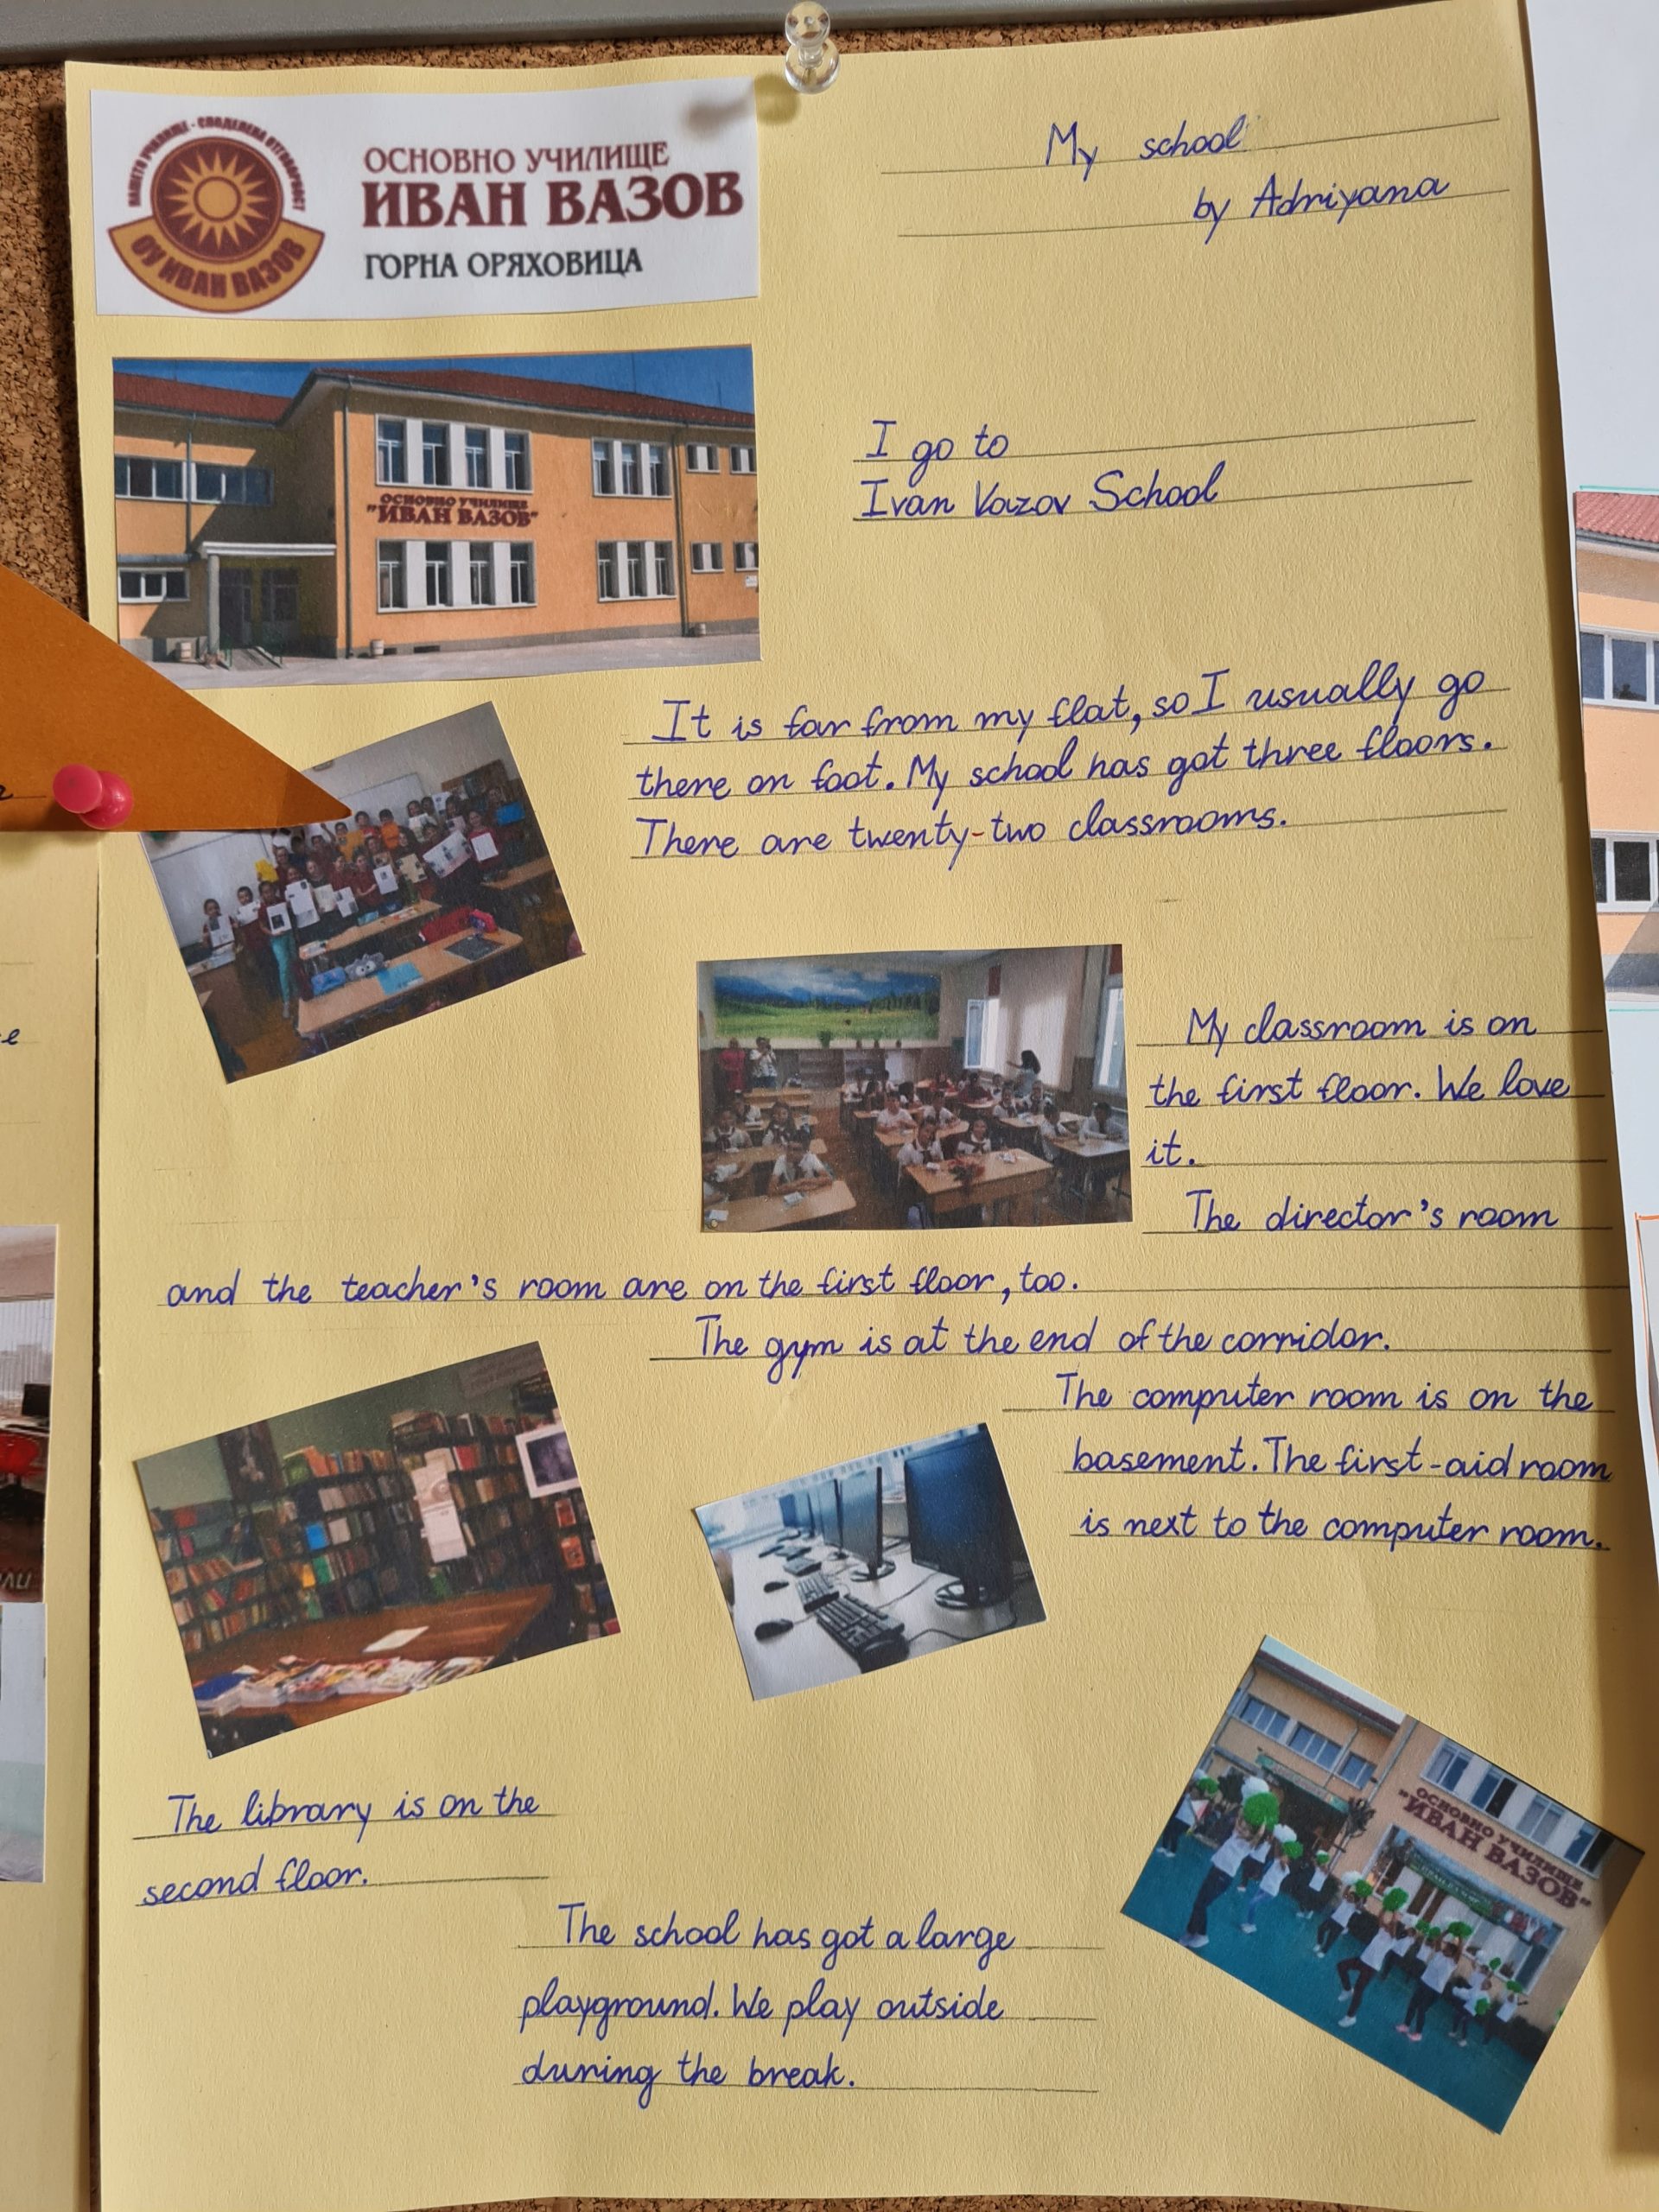 НАШЕТО УЧИЛИЩЕ - СПОДЕЛЕНА ОТГОВОРНОСТ
ОУ ИВАН ВАЗОВ
ОСНОВНО УЧИЛИЩЕ
ИВАН ВАЗОВ
ГОРНА ОРЯХОВИЦА
My school
by Adriyana
ОСНОВНО УЧИЛИЩЕ
"ИВАН ВАЗОВ"
I go to
Ivan Vazov School
It is far from my flat, so I usually go
there on foot. My school has got three floors.
There are twenty-two classrooms.
My classroom is on
the first floor. We love
it.
The director's room
and the teacher's room are on the first floor, too.
The gym is at the end of the corridor.
The computer room is on the
basement. The first-aid room
is next to the computer room.
The library is on the
second floor.
ОСНОВНО УЧИЛИЩЕ
"ИВАН ВАЗОВ"
The school has got a large
playground. We play outside
during the break.